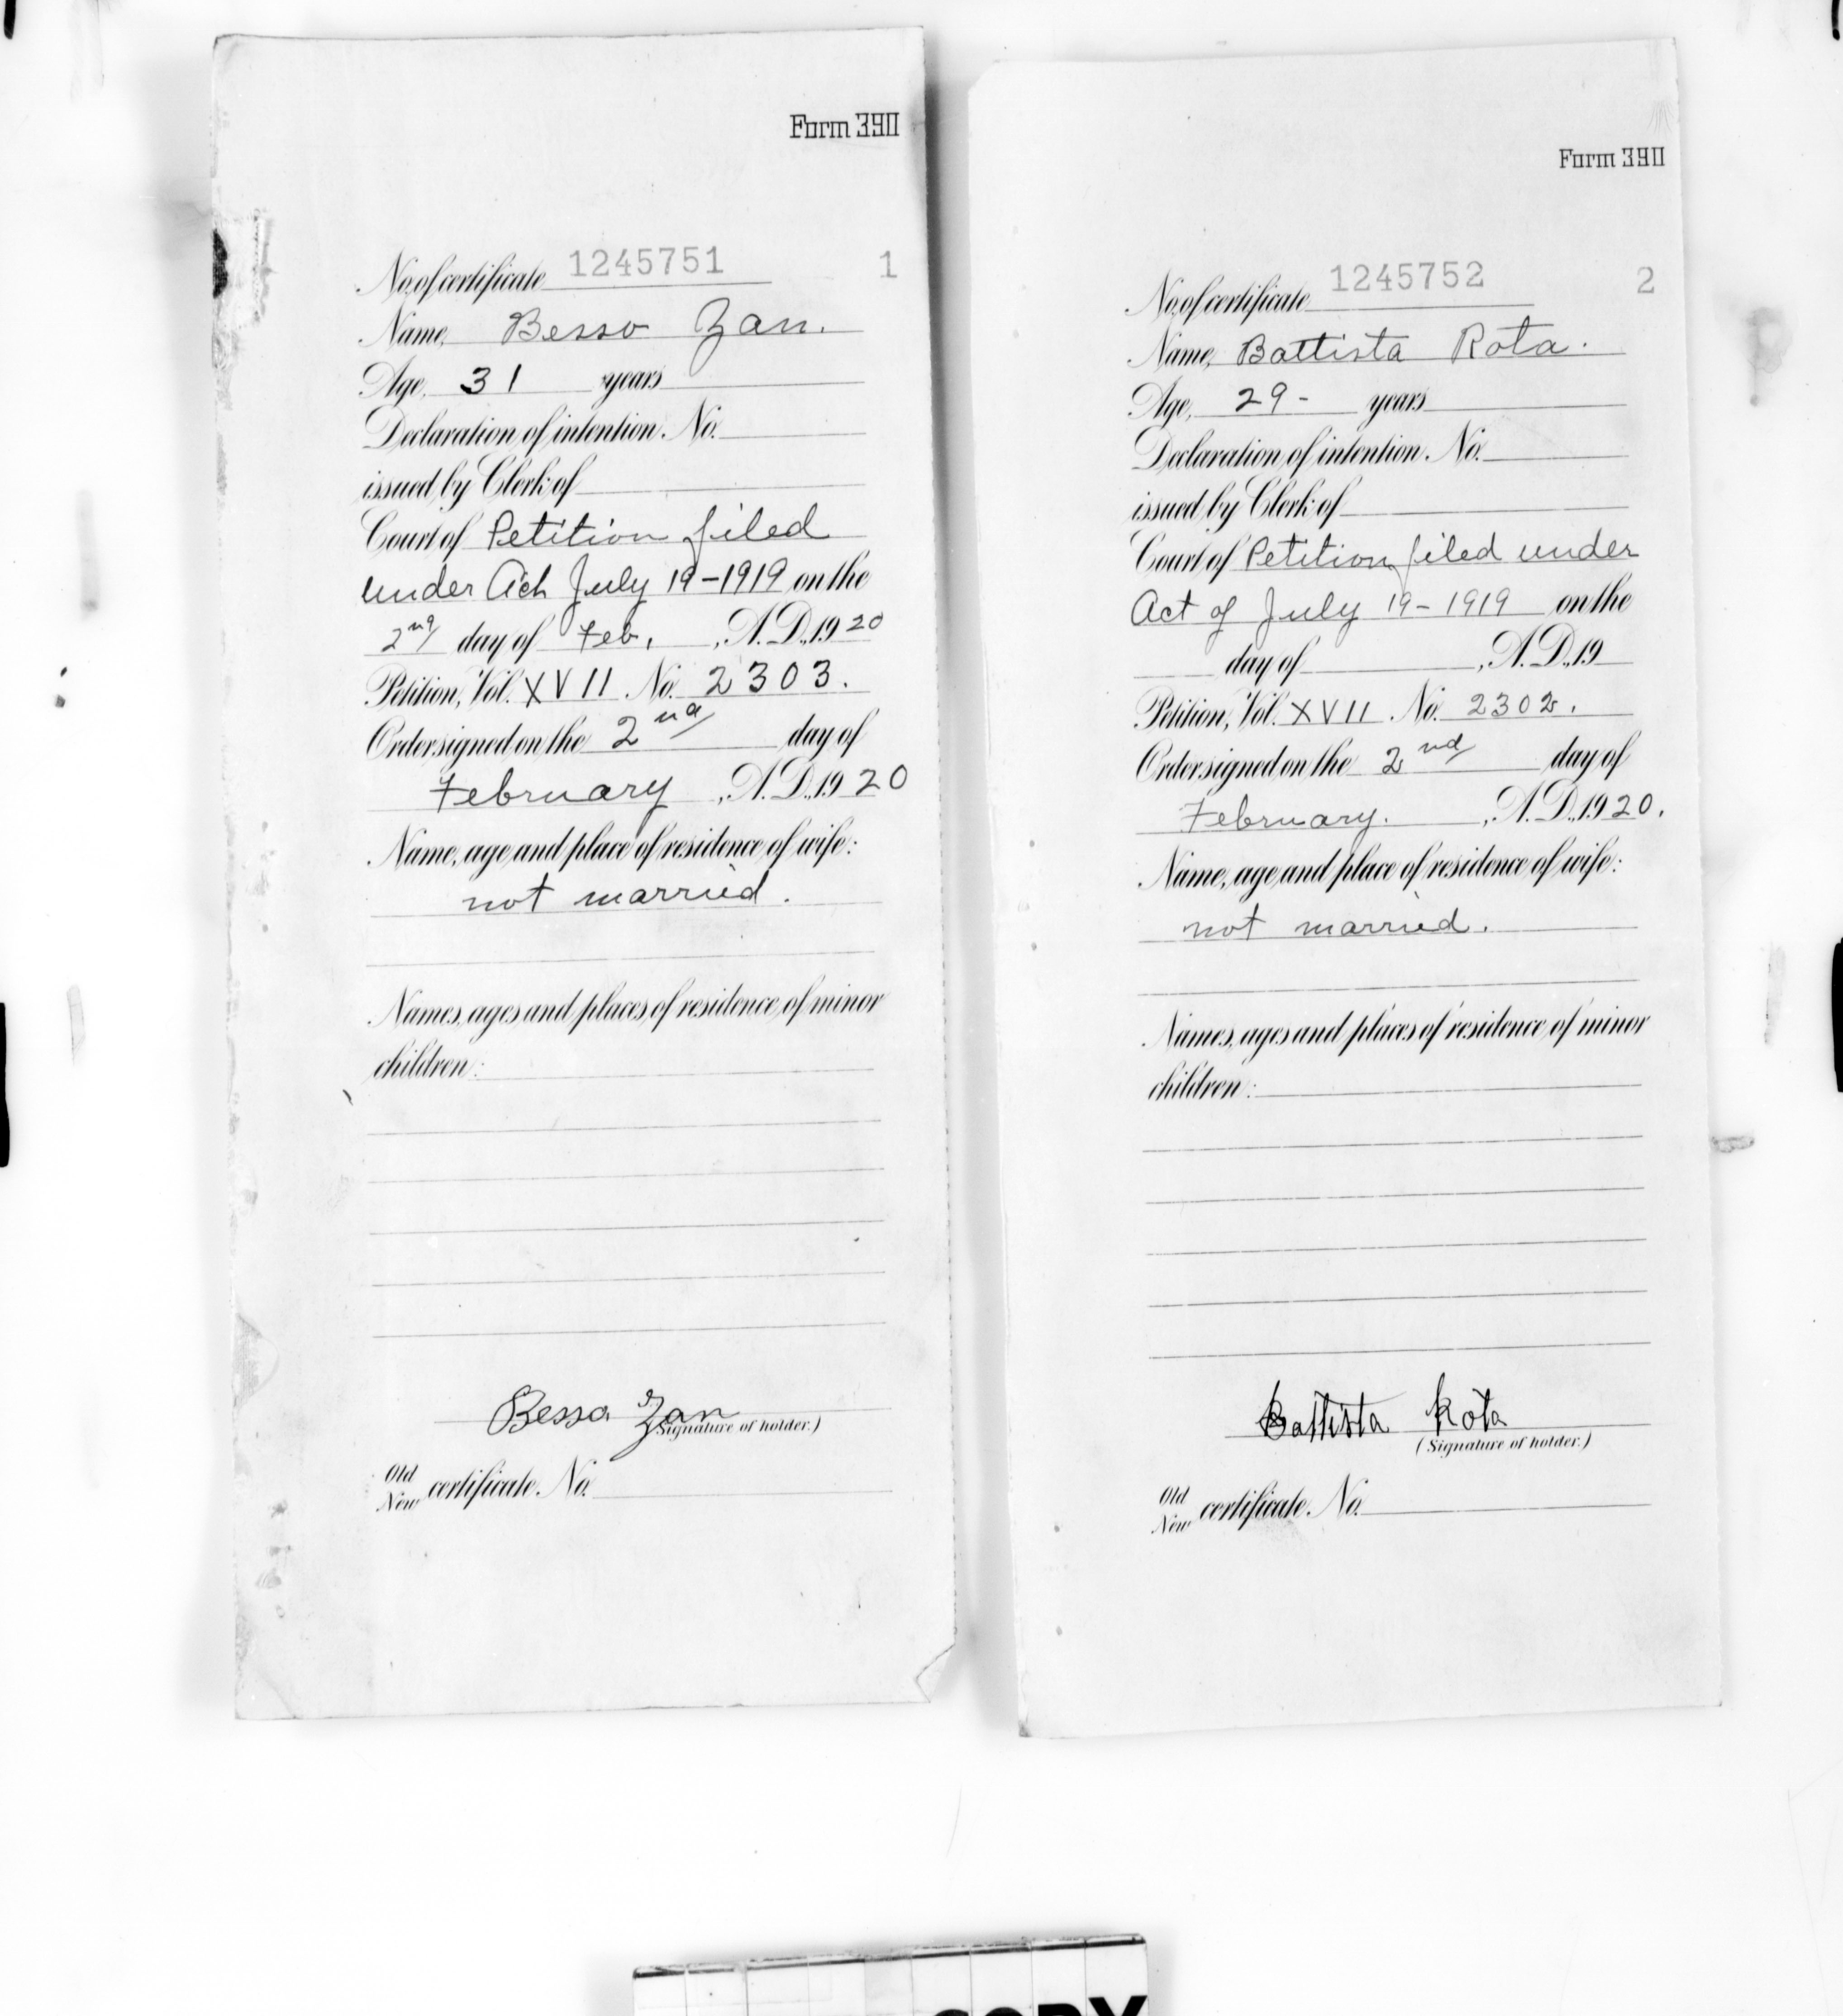 Form 390
No. of certificate 1245751 1
Name, Besso Zan.
Age, 31 years
Declaration of intention. No.
issued by Clerk of
Court of Petition filed
under Act July 19-1919 on the
2nd day of Feb. , A.D., 1920
Petition, Vol. XVII No. 2303.
Order signed on the 2nd day of
February , A.D., 1920
Name, age and place of residence of wife:
not married.
Names, ages and places of residence of minor
children:
Besso Zan
(Signature of holder.)
Old
New certificate. No.
Form 390
No. of certificate 1245752 2
Name, Battista Rota.
Age, 29- years
Declaration of intention. No.
issued by Clerk of
Court of Petition filed under
Act of July 19-1919 on the
day of , A.D., 19
Petition, Vol. XVII No. 2302.
Order signed on the 2nd day of
February. , A.D., 1920.
Name, age and place of residence of wife:
not married.
Names, ages and places of residence of minor
children:
Battista Rota
(Signature of holder.)
Old
New certificate. No.
COPY